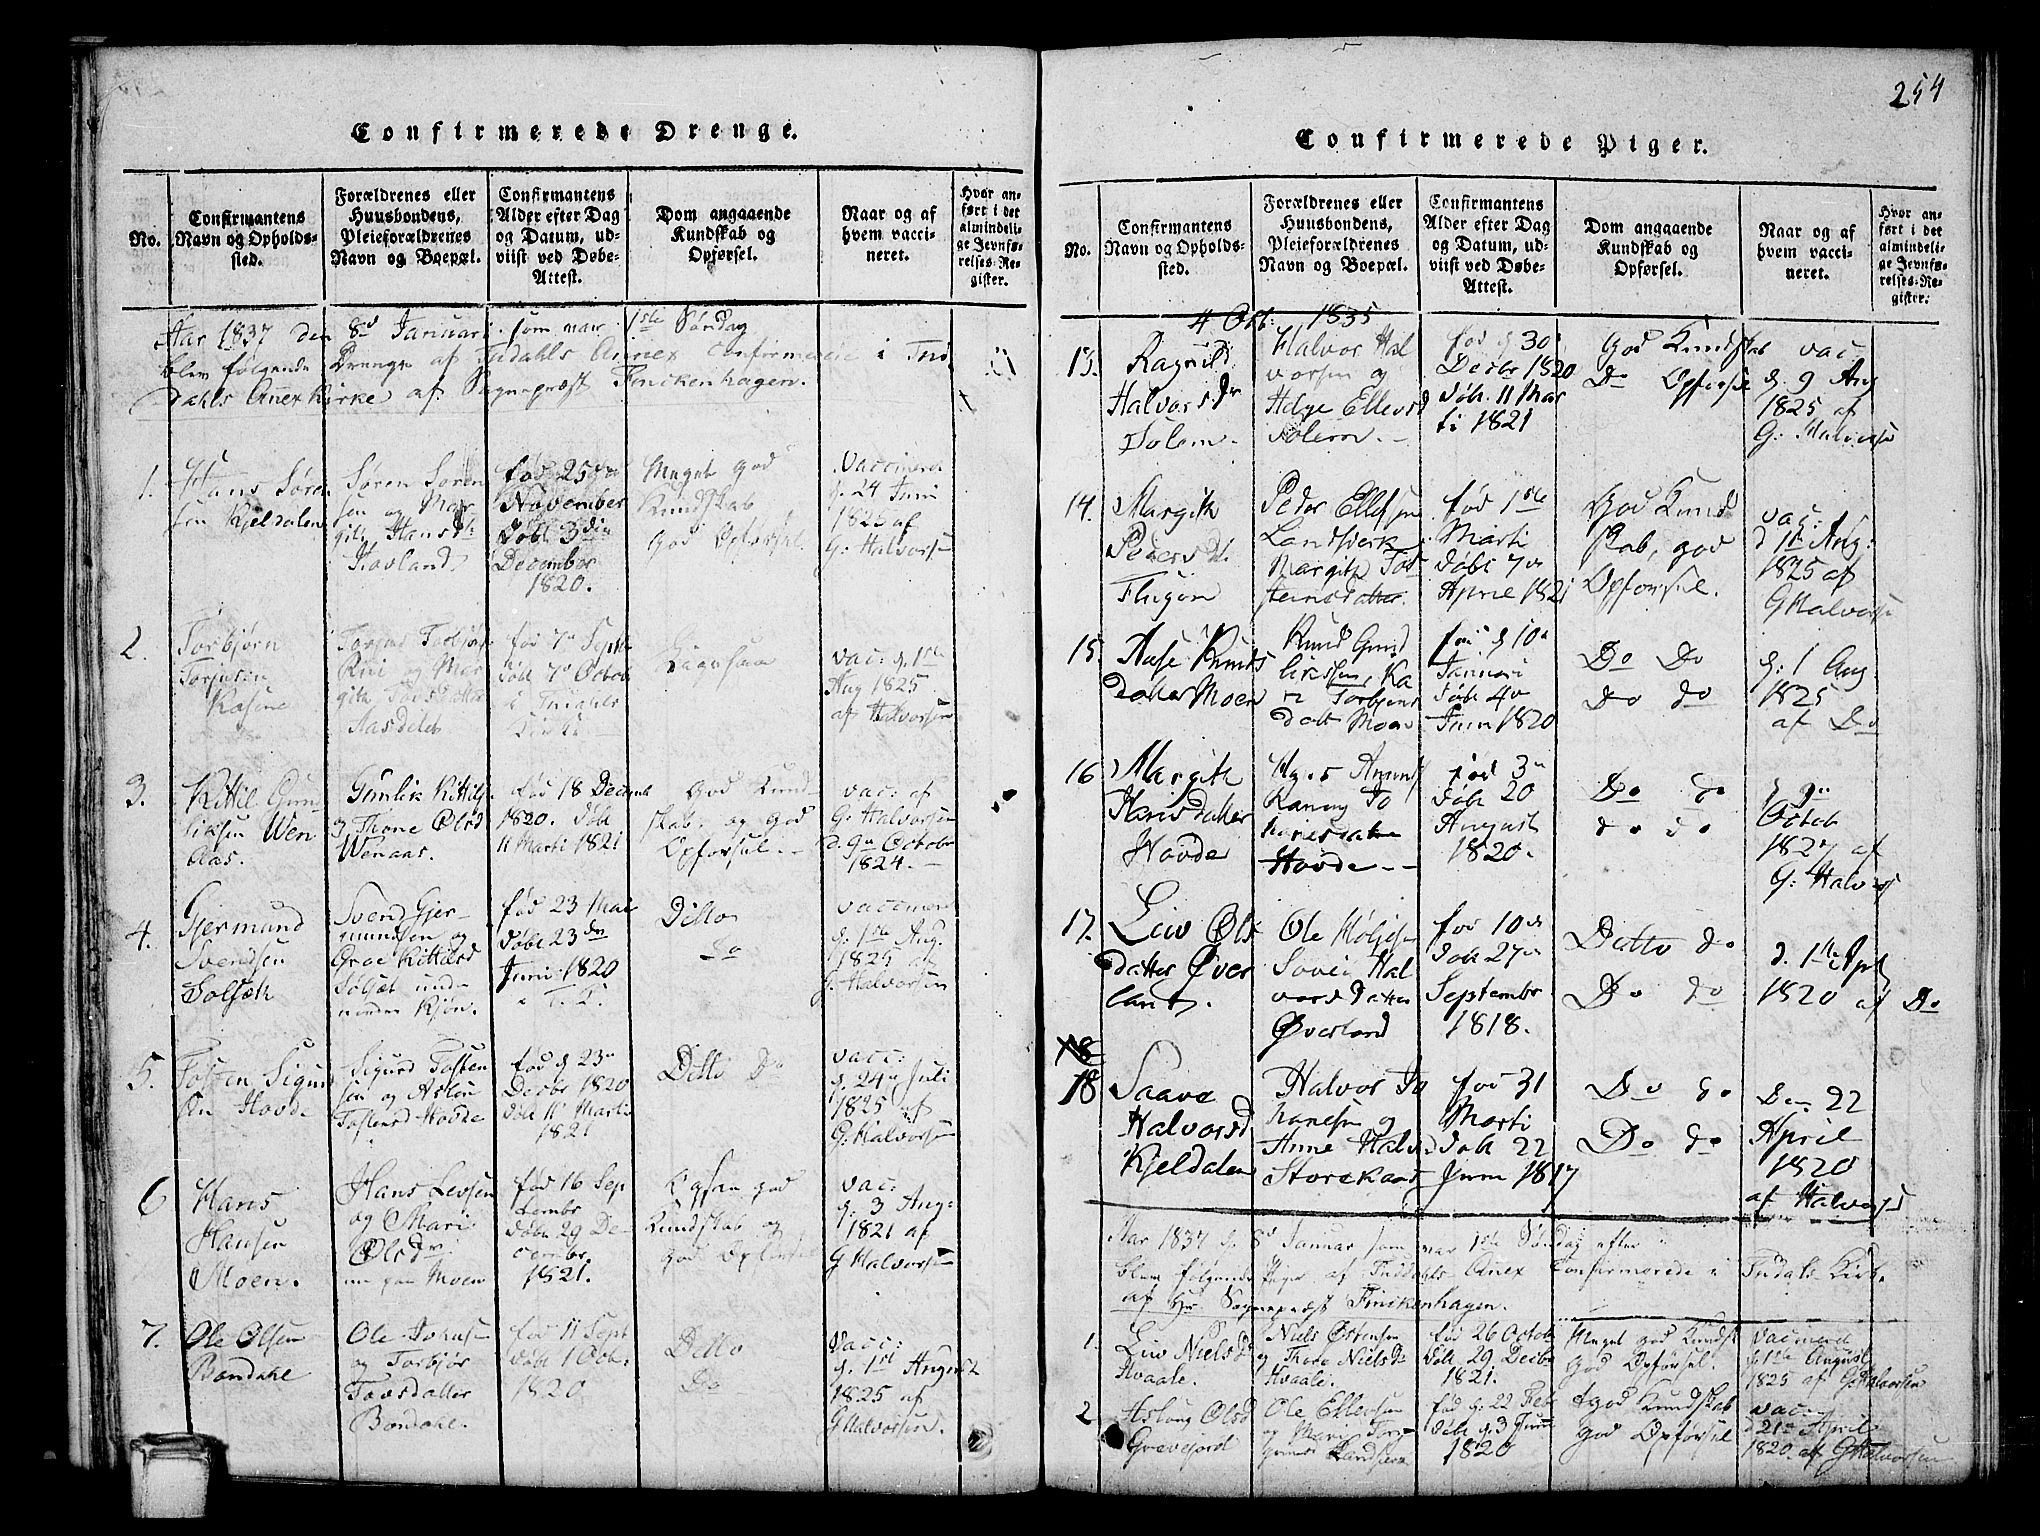 Confirmerede Drenge.
No.
Confirmantens
Navn og Opholds-
sted.
Forældrenes eller
Huusbondens,
Pleieforældrenes
Navn og Boepæl.
Confirmantens
Alder efter Dag
og Datum, ud-
viist ved Døbe-
Attest.
Dom angaaende
Kundskab og
Opførsel.
Naar og af
hvem vacci-
neret.
Hvor an-
ført i det
almindeli-
ge Jevnfø-
relses-Re-
gister.
Aar 1837 den 8d Januari som var 1ste Søndag
blev følgende Drenge af Annex Confirmerede i
dahls Anex Kirke af Sognepræst Finckenhagen.
1.
Hans Søren
sen Kjeldalen
Søren Søren
sen og Mar
git Hansd:
Hovland
fød 25de
November
Døbt 3die
December
1820.
Meget god
Kundskab
god Opførsel
Vaccineret
d. 24 Juni
1825 af
G: Halvorsen
2.
Torbjørn
Torjusen
og Mar
git
fød 7de Septbr
døbt 7de Octob
i
vac: d. 1ste
Aug 1825
af Halvorsen
3.
Kittil Gun
liksen Wen
aas.
Gunlik Kittils
Thone Olsd
Wenaas.
fød 18 Decemb
1820. døbt
11 Marti 1821
God Kund
skab og god
Opførsel.
vac: af
G. Halvorsen
d. 9de Octobr
1824.
4.
Gjermund
Svendsen
Solsæth
Svend Gjer
mundsen og
fød 23 Mai
døbt 23de
Juni 1820
Ditto
Do
vaccineret
d: 1ste Aug.
1825 af
G. Halvorsen
5.
Tosten Sigurd
sen Hovde
Sigurd Tosten
sen og Aslou
Tostensd Hovde
fød d 23de
Decbr 1820
døbt 11 Martii
1821
Ditto Do
vacc:
d. 24 Juli
1825 af
G: Halvorsen
6
Hans
Hansen
Moen.
Hans Levsen
og Mari
Olsdr
Moen
fød 16 Sep
tembr
døbt 29 De
cembr.
1821.
god
Kundskab og
god Opførsel
vac:
d: 3 Aug:
1821 af
G Halvorsen
7.
Ole Olsen
Bondahl
Ole Johnsen
og Torbjør
Tovsdatter
Bondahl.
fød 11 Sept
døbt 1 Octb:
1820
Ditto
Do
Vacc:
d. 1st August
1825 af
G Halvorsen.
254
Confirmerede Piger.
No.
Confirmantens
Navn og Opholds-
sted.
Forældrenes eller
Huusbondens,
Pleieforældrenes
Navn og Boepæl.
Confirmantens
Alder efter Dag
og Datum, ud-
viist ved Døbe-
Attest.
Dom angaaende
Kundskab og
Opførsel.
Naar og af
hvem vacci-
neret.
Hvor an-
ført i det
almindeli-
ge Jevnfø-
relses-Re-
gister.
4 Oct: 1835
13.
Ragnild
Halvorsdr
Solem.
Halvor Hal
vorsen og
Helge Ellevsd
Solem.
fød d 30
Decbr 1820
døbt. 11 Mar
ti 1821
God Kundskab
Do Opførsel
vac
d. 9 Aug
1825 af
G: Halvorsen
14.
Margith
Pedersd:
Flugon
Peder Ellefsen
Landsverk
Margith Tos
steinsdatter.
fød 1ste
Marti
døbt 7de
April 1821
God Kund
skab, god
Opførsel.
vac:
d 1ste Aug:
1825 af
G Halvorsen
15.
Aase Knuds
datter Moen
Knud Gund
Torbjøns
datt Moen
fød d 10de
Januari
døbt 4de
Juni 1820
Do Do
do do
d: 1 Aug
1825
af Do
16
Margith
Hansdatter
Hovde
Amunds
Hovde
fød 3de
døbt 20
August
1820.
Do do
do do
d 9de
Octob
1827 af
G: Halvors
17.
Liv Ols
datter Øver
land.
Ole Høljesen
Sovei Hal
vorsdatter
Øverland
fød 10de
døbt 27de
Septembr
1818.
Ditto do
Do do
d. 1ste Apl
1820 af Do
18
18
Saave
Halvorsd
Kjeldalen
Halvor Jo
hansen og
Anne Halv
Storekaas
fød 31
Marti
døbt 22
Juni 1817
Do do
Do do
Den 22
April
1820
af Halvors
Aar 1837 d. 8d Januar som var 1ste Søndag efter
blev følgende Piger af Anex Confirmerede i Kirke
af Hr Sognepræst Finckenhagen.
1.
Liv Nielsd
Hvaale.
Niels Østensen
og Thora Nielsdr
Hvaale.
fød 26 Octobr
døbt 29 Decbr
1821.
Meget god Kundsk
God Opførsel.
vaccineret
d. 1ste August
1825 af G Halvorsen
2
Aslaug Olsd
Gravejord
Ole Ellevsen
og Mari
fød d: 22 Feb
døbt d. 3 Juni
1820
god Kundskab
god Opførsel
vac:
d 21de April
1820. af G Halvorsen